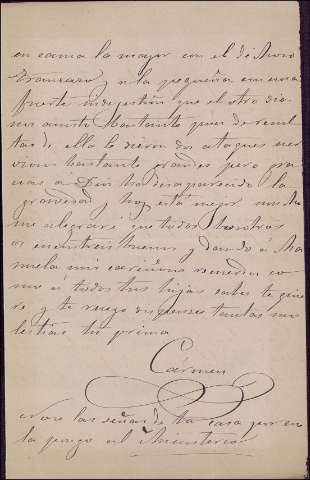 en cama la mayor con el
y a la pequeña con una
fuerte indigestión que el otro dia
nos asustó bastante pues de resul
tas de ella le dieron dos ataques ner
viosos bastante grandes pero gra
cias a Dios ha desaparecido la
gravedad y hoy está mejor
me alegraré que todos vosotros
os encontreis buenos y dando á Ma
nuela mis cariñosos recuerdos co
mo á todos tus hijos sabes te quie
re y te ruego dispenses tantas mo
lestias tu prima
Cármen
las señas de tu casa por eso
la pongo al Ministerio